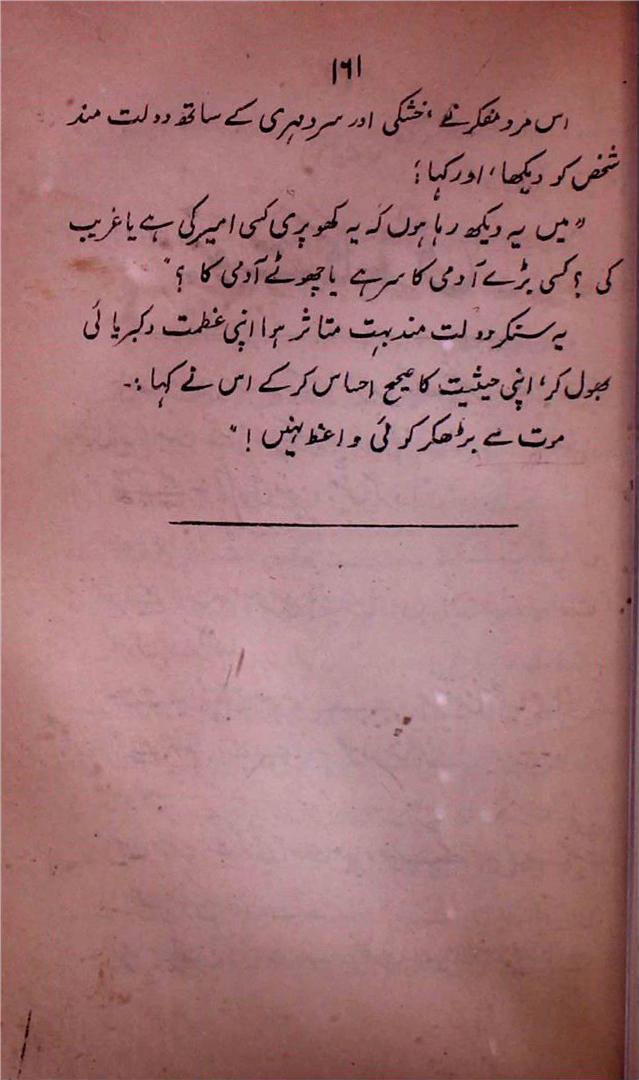 ۱۶۱
اس مرد مفکر نے ، خشکی اور سرد مہری کے ساتھ دولت مند
شخص کو دیکھا ، اور کہا ؛
"میں یہ دیکھ رہا ہوں کہ یہ کھوپری کسی امیر کی ہے یا غریب
کی ؟ کسی بڑے آدمی کا سر ہے یا چھوٹے آدمی کا ؟"
یہ سنکر دولت مند بہت متاثر ہوا اپنی عظمت و کبریائی
بھول کر ، اپنی حیثیت کا صحیح احساس کر کے اس نے کہا :۔
موت سے بڑھکر کوئی واعظ نہیں !"